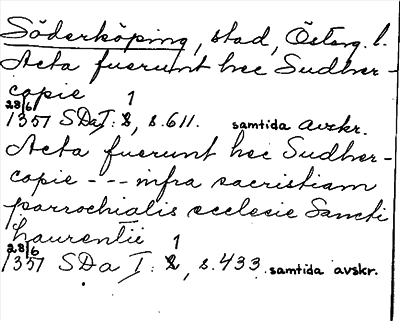 Söderköping, stad, Österg. l.
Acta fuerunt hec Sudher-
copie
28/6 1357 SDa I: 1, s. 611. samtida avskr.
Acta fuerunt hec Sudher-
copie --- infra sacristiam
parrochialis ecclesie Sancti
Laurentii
28/6 1357 SDa I: 1, s. 433. samtida avskr.